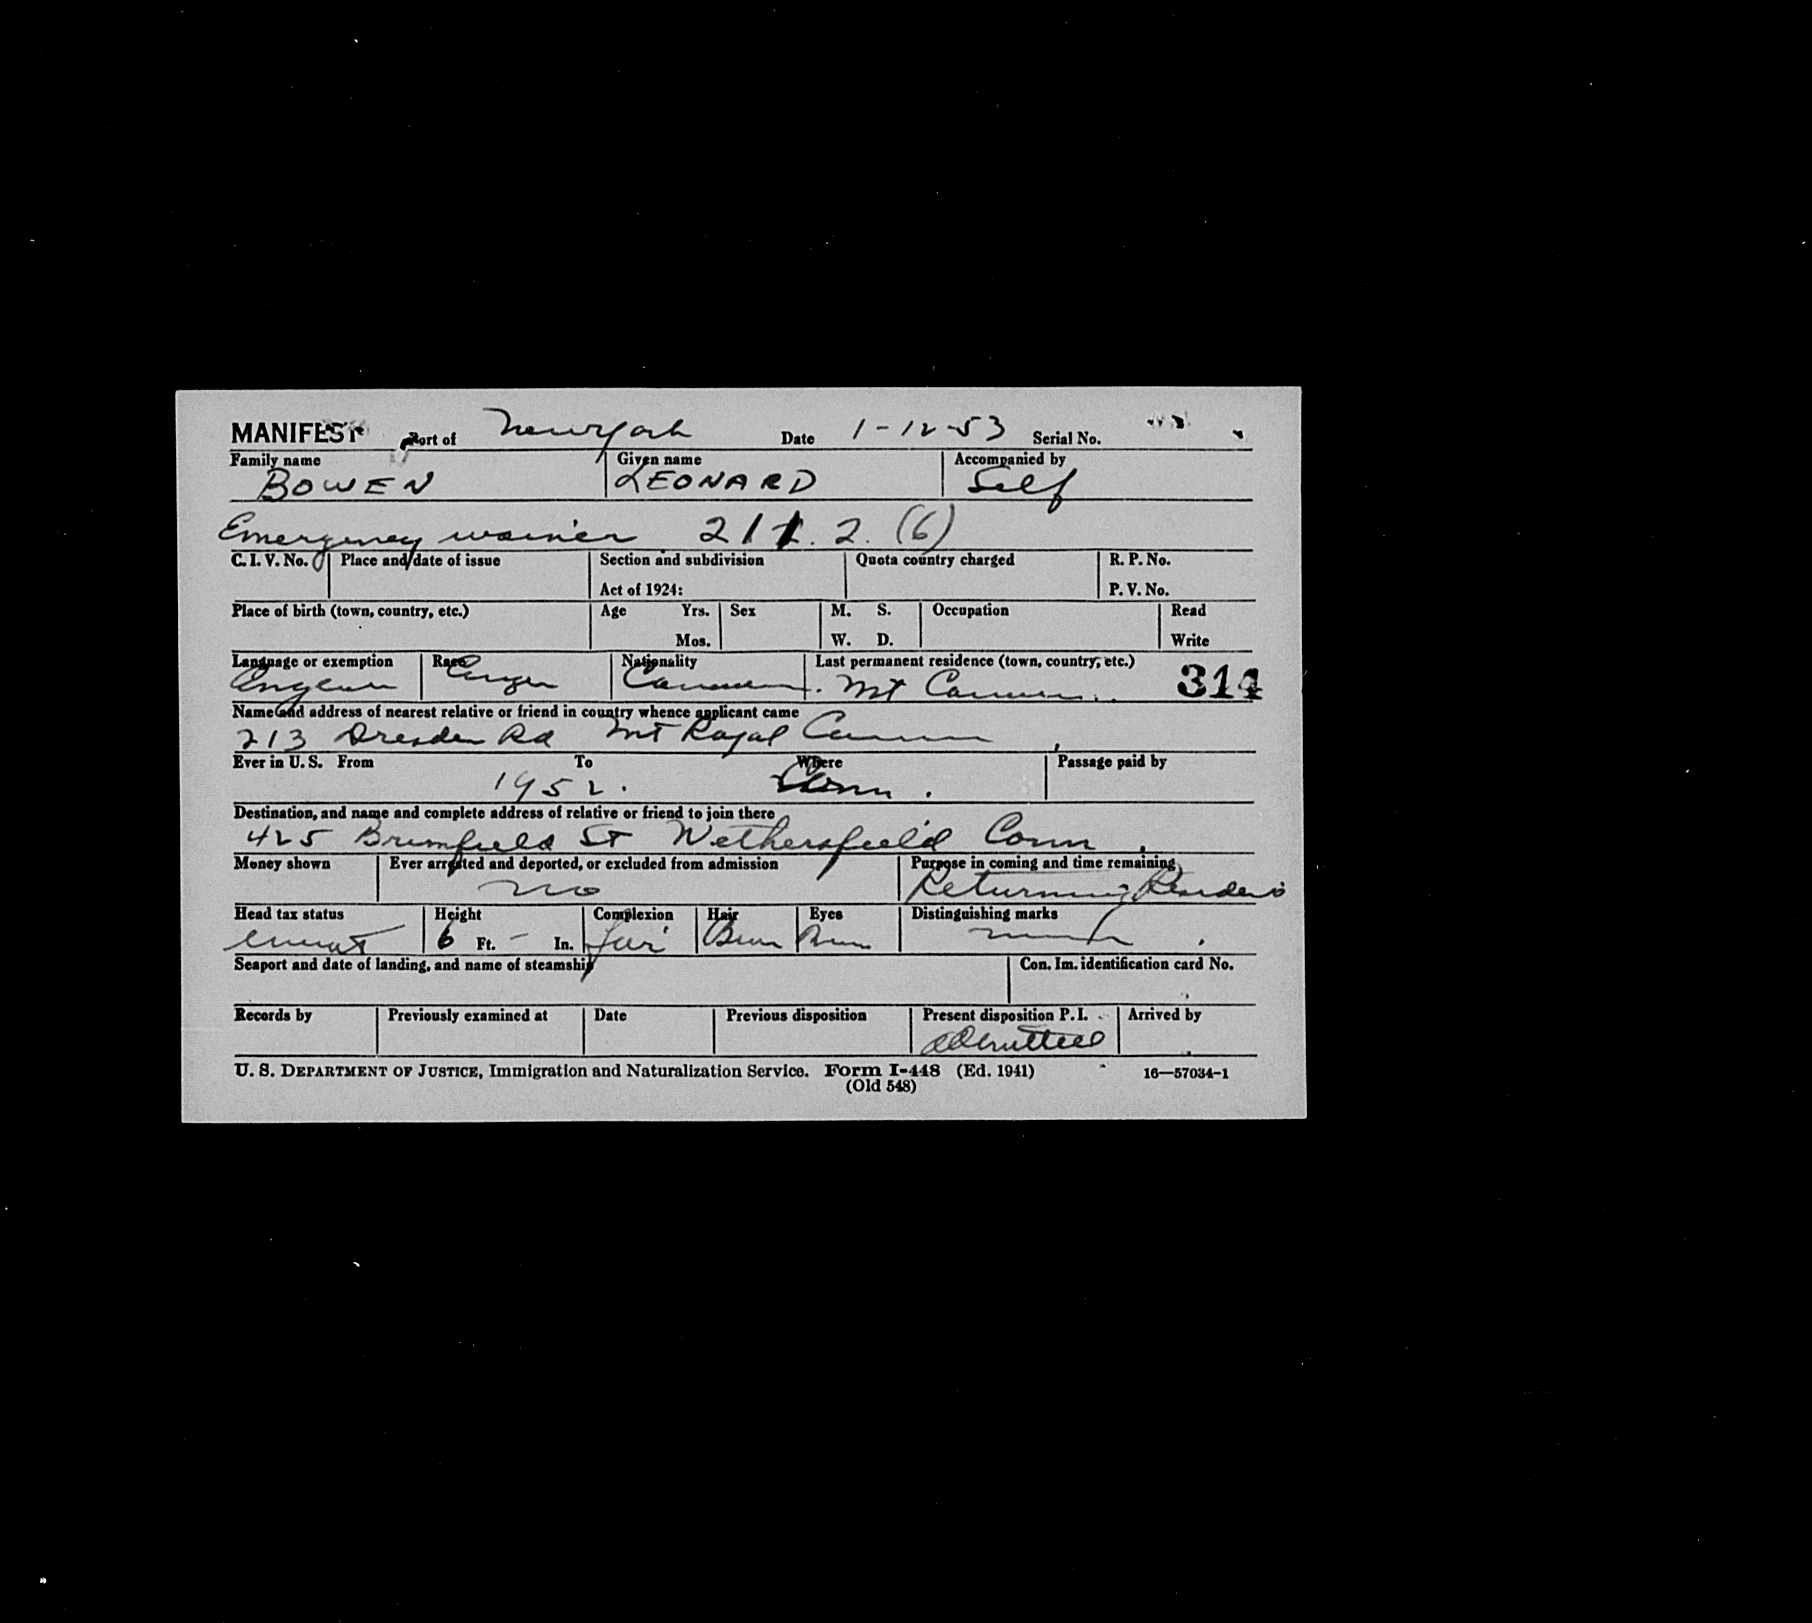 MANIFEST Port of New York Date 1-12-53 Serial No.
Family name Given name Accompanied by
BOWEN LEONARD Self
Emergency waiver 211. 2. (6)
C. I. V. No. Place and date of issue Section and subdivision Quota country charged R. P. No.
Act of 1924: P. V. No.
Place of birth (town, country, etc.) Age Yrs. Sex M. S. Occupation Read
Mos. W. D. Write
Language or exemption Race Nationality Last permanent residence (town, country, etc.) 314
Mt
Name and address of nearest relative or friend in country whence applicant came
213 Dresden Rd Mt Royal
Ever in U. S. From To Where Passage paid by
1952. Conn.
Destination, and name and complete address of relative or friend to join there
425 Brimfield St Wethersfield Conn.
Money shown Ever arrested and deported, or excluded from admission Purpose in coming and time remaining
no Returning
Head tax status Height Complexion Hair Eyes Distinguishing marks
6 Ft. - In. fair
Seaport and date of landing, and name of steamship Con. Im. identification card No.
Records by Previously examined at Date Previous disposition Present disposition P. I. Arrived by
Admitted
U. S. DEPARTMENT OF JUSTICE, Immigration and Naturalization Service. Form I-448 (Ed. 1941) 16—57034-1
(Old 548)